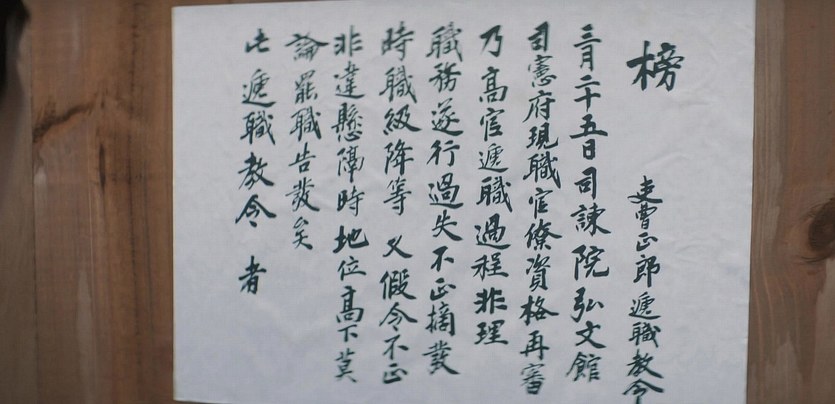 榜
吏曹正郎遞職教令
三月二十五日司諫院弘文館
司憲府現職官僚資格再審
乃高官遞職過程非理
職務遂行過失不正摘發
時職級降等 又假令不正
非違懸隔時地位高下莫
論罷職告發矣
此遞職教令 者